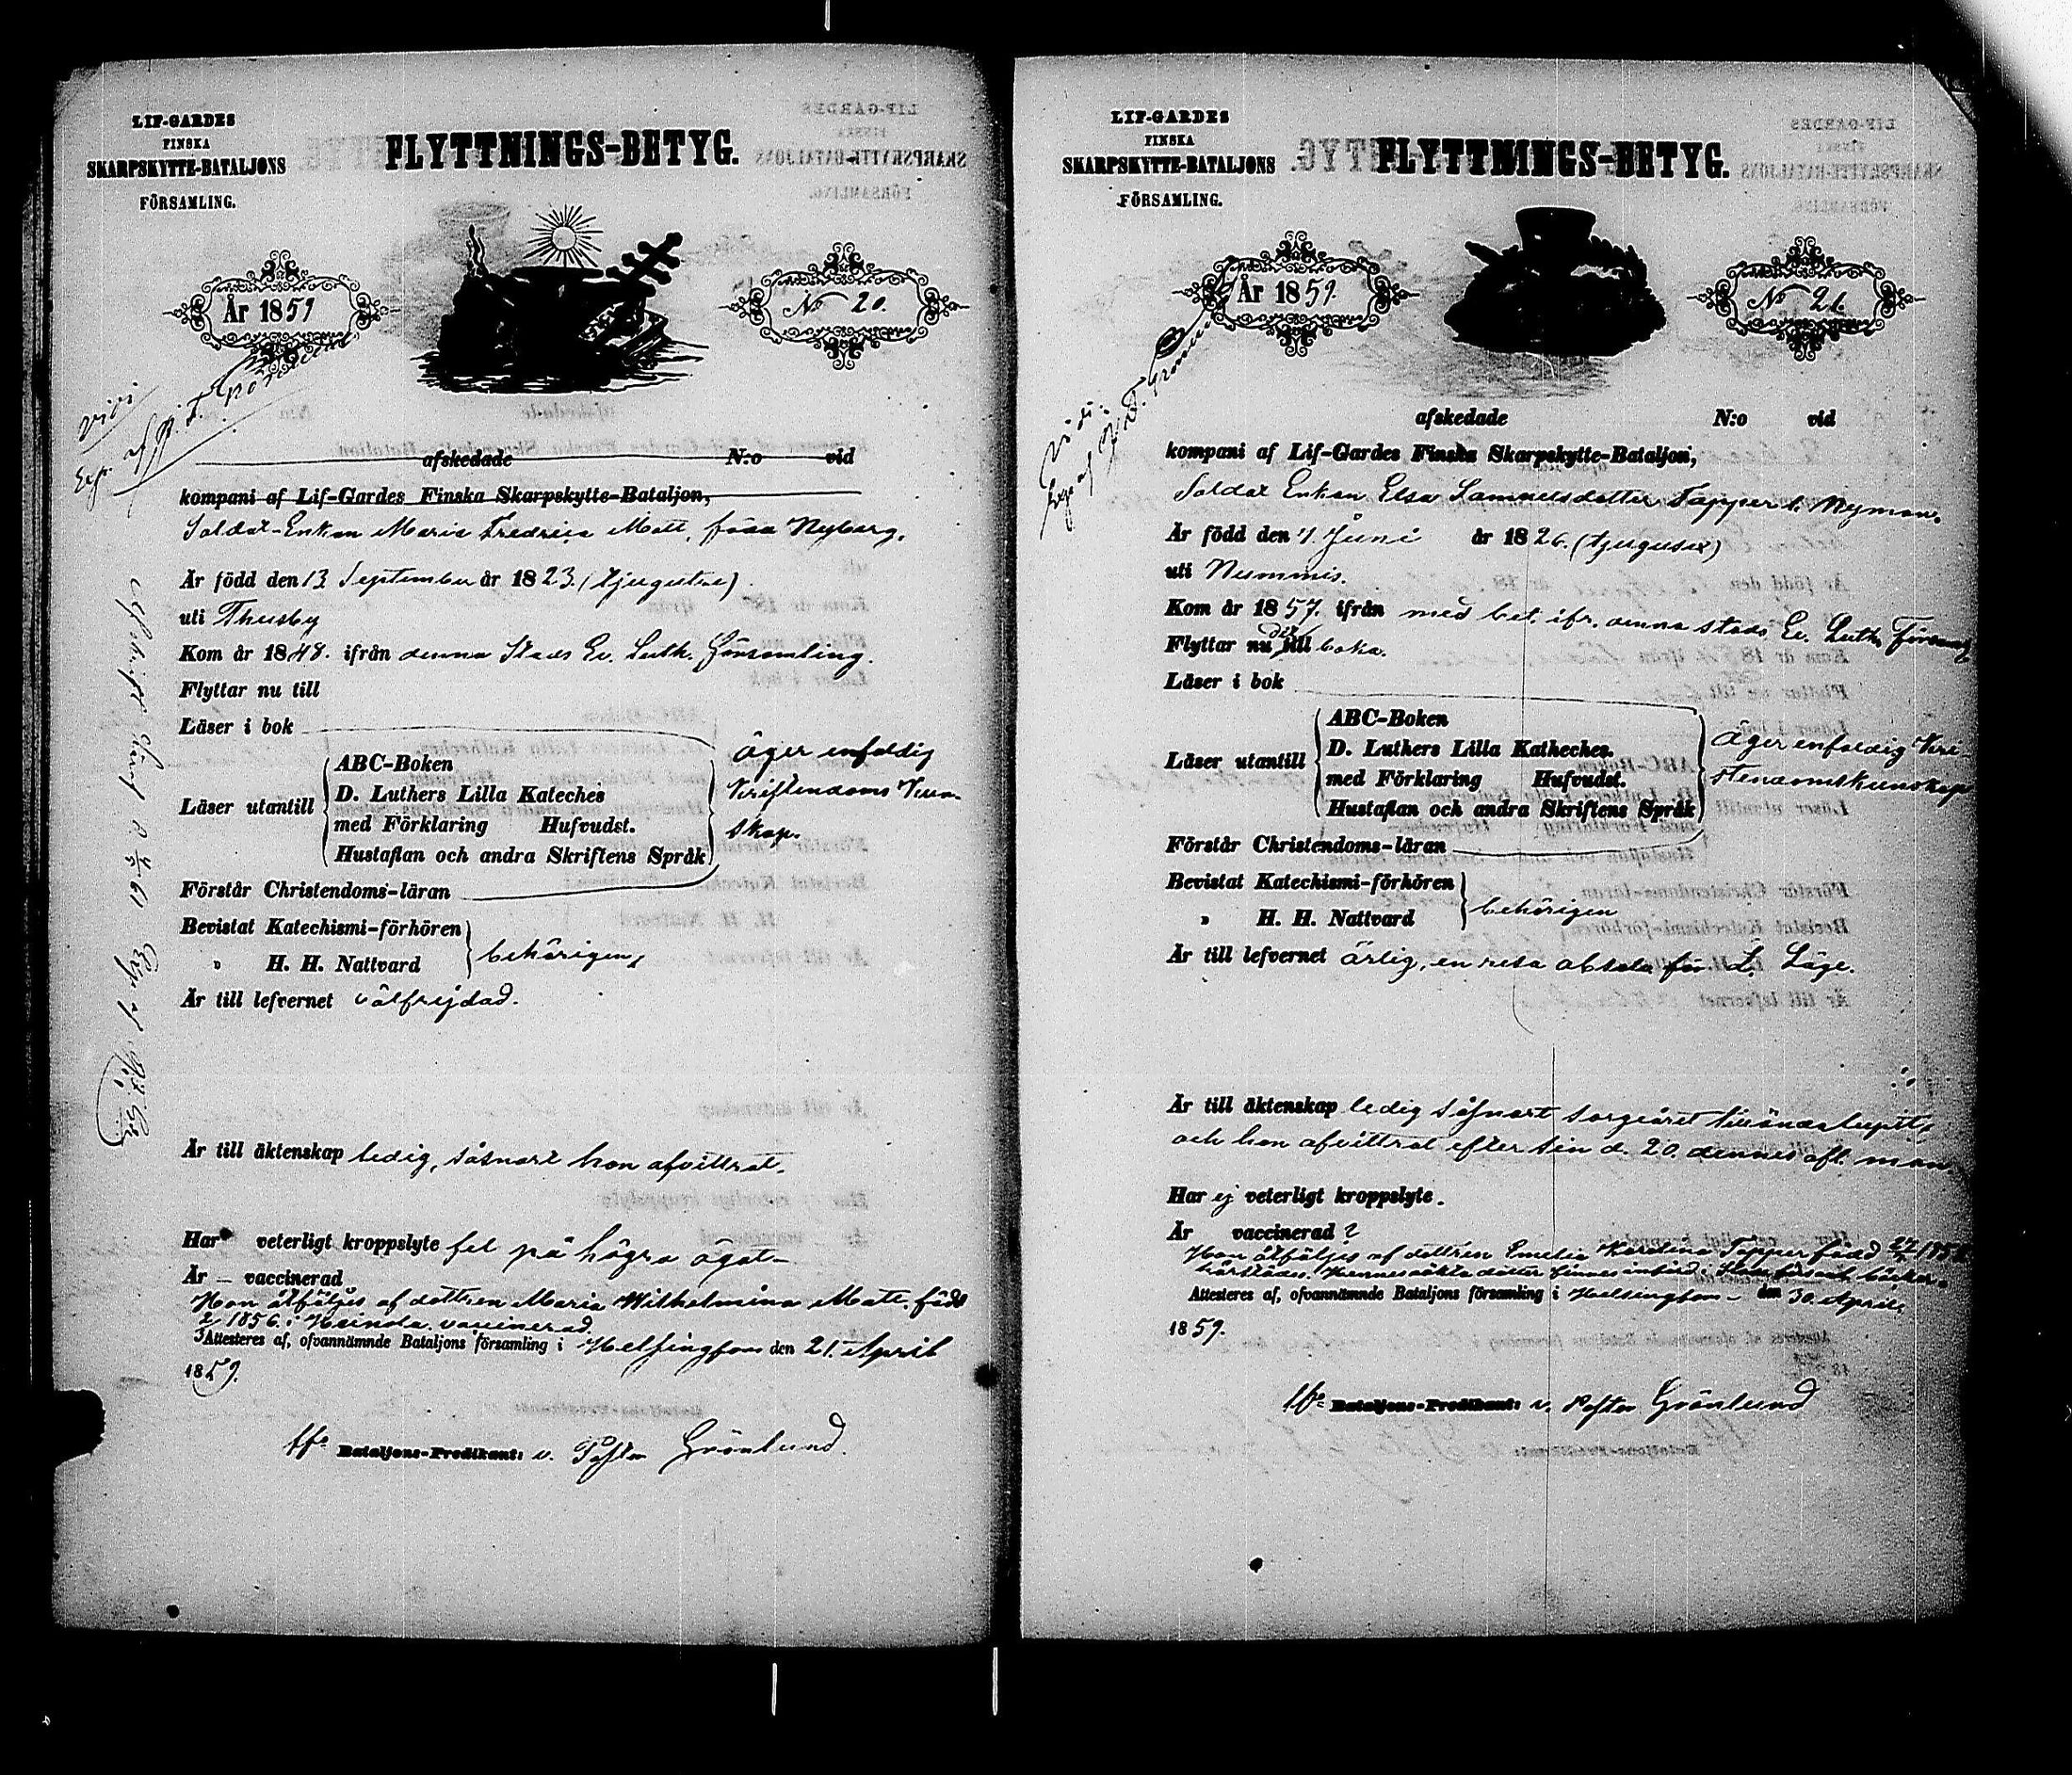 LIF-GARDES
FINSKA
SKARPSKYTTE-BATALJONS
FÖRSAMLING.
FLYTTNINGS-BETYG.
År 1859
No 20.
vidi
afskedade N:o vid
kompani af Lif-Gardes Finska Skarpskytte-Bataljon,
Soldat-Enkan Maria Fredrica Matt, född Nyberg.
Är född den 13 September år 1823. (tjugutre)
uti Thusby
Kom år 1848. ifrån denna Stads Ev. Luth. församling.
Flyttar nu till
Läser i bok
Läser utantill
ABC-Boken
D. Luthers Lilla Kateches
med Förklaring Hufvudst.
Hustaflan och andra Skriftens Språk
äger enfaldig
Kristendoms Kun-
skap.
Förstår Christendoms-läran
Bevistat Katechismi-förhören
" H. H. Nattvard
behörigen,
Är till lefvernet välfrejdad.
Är till äktenskap ledig, såsnart hon afvittrat.
Har veterligt kroppslyte fel på högra ögat
Är – vaccinerad
Hon åtföljes af dottren Maria Wilhelmina Matt, född
1856 i Heinola, vaccinerad.
Attesteres af, ofvannämnde Bataljons församling i Helsingfors den 21. April
1859.
Bataljons-Predikant: v. Pastor Grönlund.
LIF-GARDES
FINSKA
SKARPSKYTTE-BATALJONS
FÖRSAMLING.
FLYTTNINGS-BETYG.
År 1859.
No 21.
Vidi.
afskedade N:o vid
kompani af Lif-Gardes Finska Skarpskytte-Bataljon,
Soldat Enkan Elsa Samuelsdotter Tapper f. Nyman.
Är född den 4. Juni år 1826. (tjugusex)
uti Nummis.
Kom år 1857. ifrån med bet. ifr. denna stads Ev. Luth. Församl.
Flyttar nu dit till baka.
Läser i bok
Läser utantill
ABC-Boken
D. Luthers Lilla Katheches.
med Förklaring Hufvudst.
Hustaflan och andra Skriftens Språk
Äger enfaldig Kri-
stendomskunskap
Förstår Christendoms-läran
Bevistat Katechismi-förhören
" H. H. Nattvard
behörigen
Är till lefvernet ärlig, en resa absolv. för L. Läge.
Är till äktenskap ledig såsnart sorgeåret tilländalupit,
och hon afvittrat efter sin d. 20. dennes afl. man
Har ej veterligt kroppslyte.
Är vaccinerad?
Hon åtföljes af dottren Emelia Karolina Tapper född
härstädes. Hennes äkta dotter finnes införd i
Attesteres af, ofvannämnde Bataljons församling i Helsingfors – den 30. April
1859.
Bataljons-Predikant: v. Pastor Grönlund